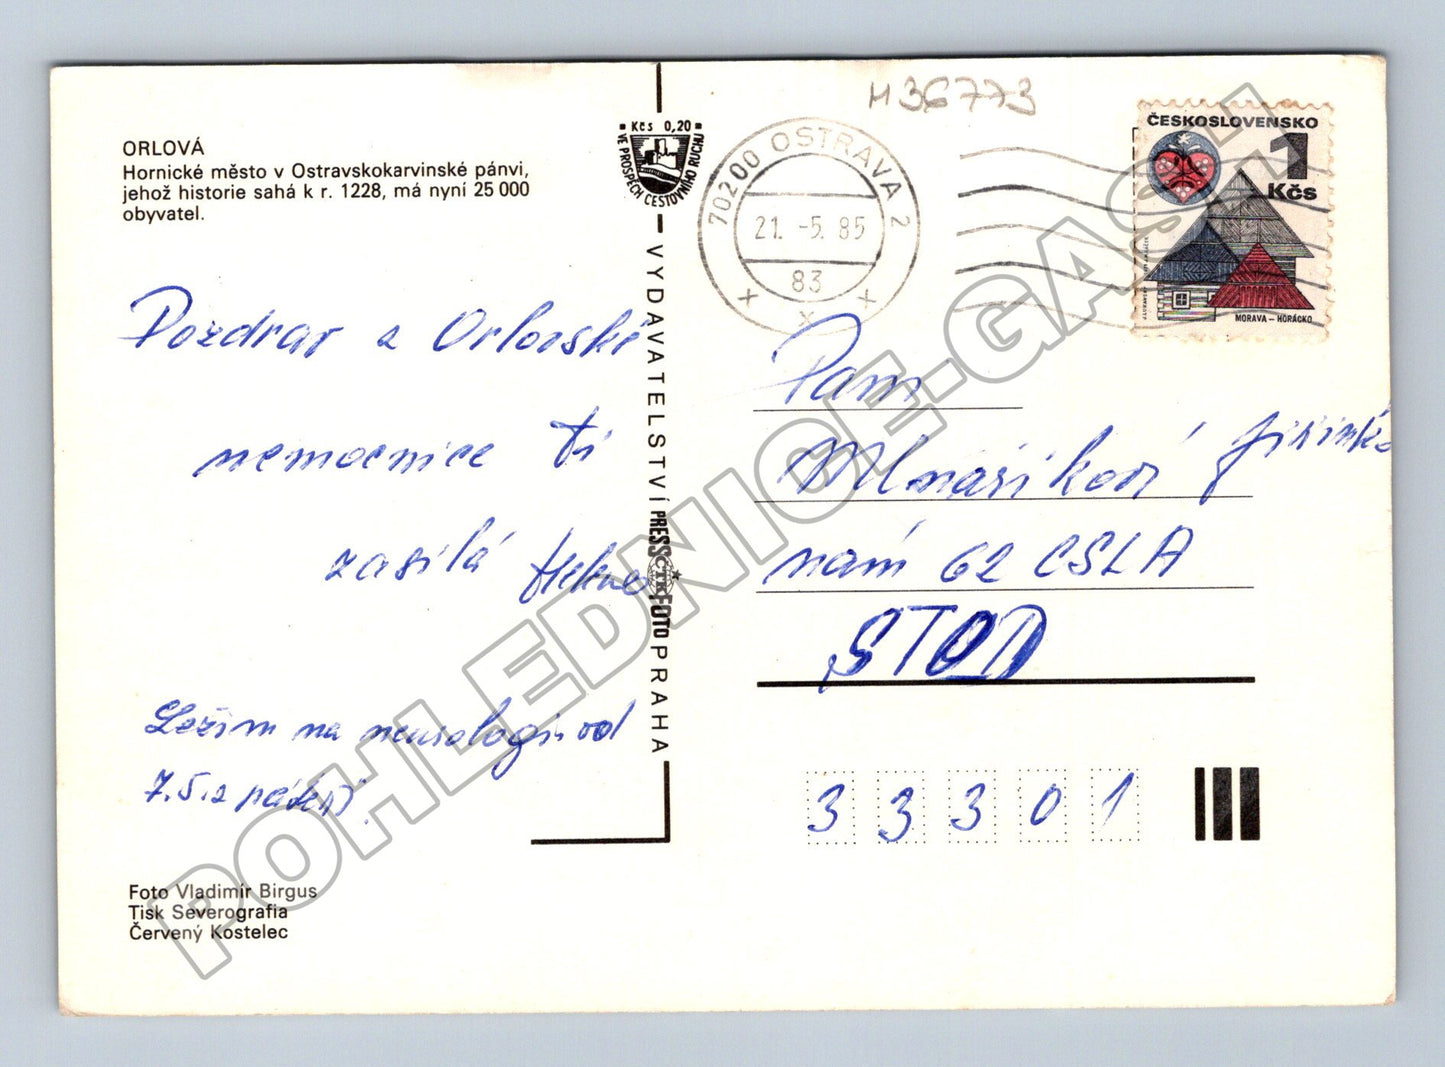 ORLOVÁ
Hornické město v Ostravskokarvinské pánvi,
jehož historie sahá k r. 1228, má nyní 25 000
obyvatel.
Pozdrav z Orlovské
nemocnice ti
zasílá Helena
Ležím na neurologii od
7.5.
Foto Vladimír Birgus
Tisk Severografia
Červený Kostelec
Kčs 0,20
VE PROSPĚCH CESTOVNÍHO RUCHU
VYDAVATELSTVÍ PRESSFOTO PRAHA
ČTK
M36773
702 00 OSTRAVA 2
21. -5. 85
83
ČESKOSLOVENSKO
1
Kčs
MORAVA – HORÁCKO
Paní
Mlnaříková Jiřinka
nám 62 ČSLA
STOD
33301
POHLEDNICE-GASH